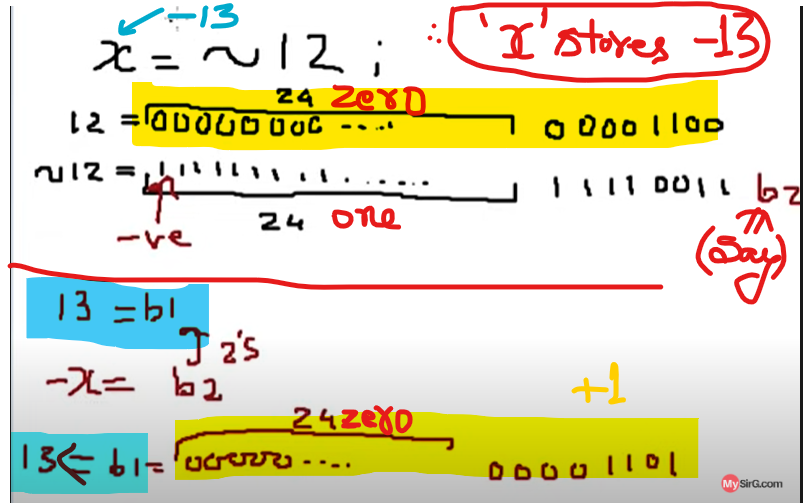 -13
x = ~12 ; ∴ 'x' stores -13
24 zero
12 = 000000000 ..... 00001100
~12 = 111111111...... 11110011 b2
-ve 24 one (say)
13 = b1
2's
-x = b2
+1
24 zero
13 <= b1 = 000000.... 00001101
MySirG.com